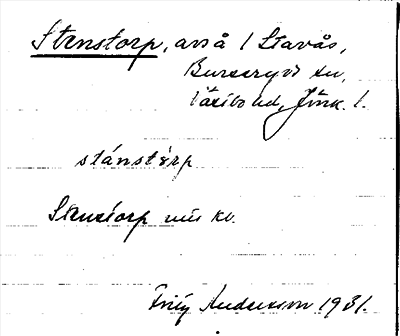 Stenstorp, avs å 1 Stavås,
Burseryds sn,
Västbo hd, Jönk. l.
stánstərp
Stenstorp
Fritz Andersson 1931.